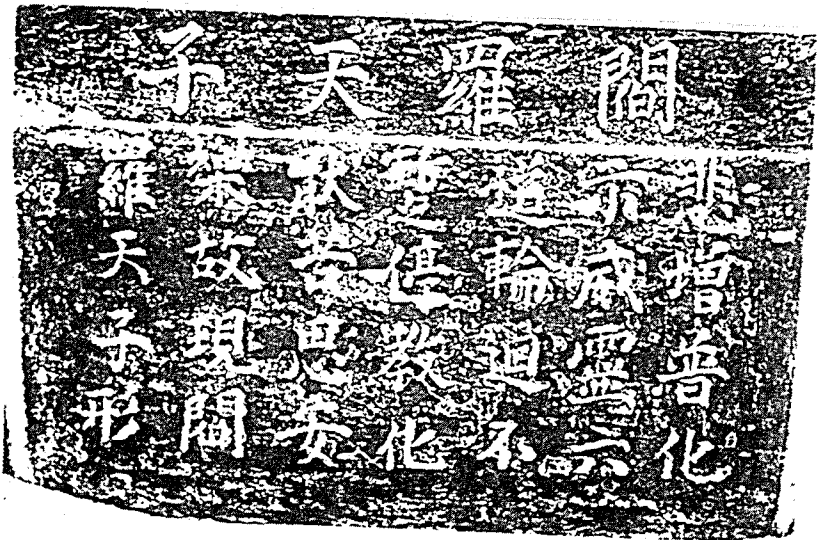 閻羅天子
悲增普化
示威靈六
道輪迴不
暫停教化
厭苦思安
樂故現閻
羅天子形